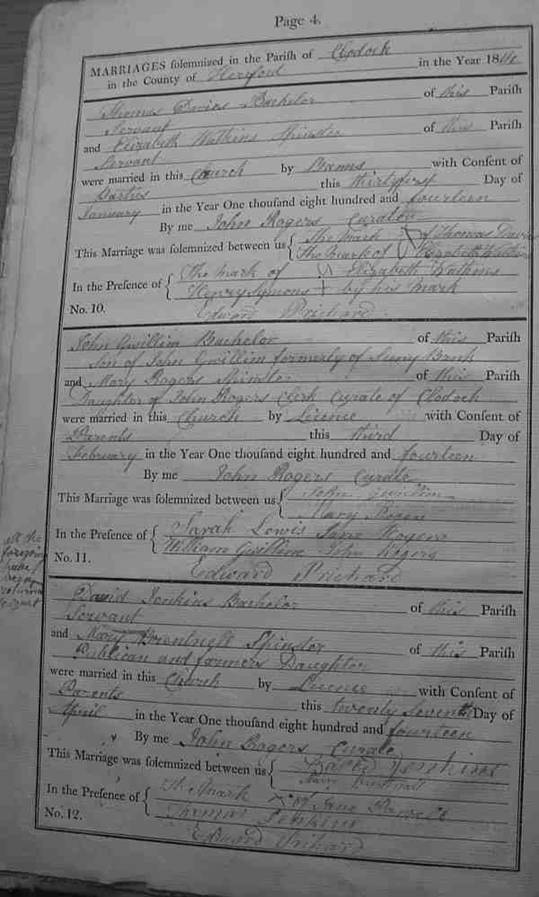 Page 4.
MARRIAGES solemnized in the Parish of Clodock
in the County of Hereford in the Year 1814
Thomas Davies Bachelor of this Parish
Servant
and Elizabeth Watkins Spinster of this Parish
Servant
were married in this Church by Banns with Consent of
Parties this thirty first Day of
January in the Year One thousand eight hundred and fourteen
By me John Rogers Curate
This Marriage was solemnized between us { The mark of Thomas Davies
The mark of Elizabeth Watkins
In the Presence of { The mark of Elizabeth Watkins
Henry Symons + by his mark
No. 10. Edward Prichard
John Gwillim Bachelor of this Parish
Son of John Gwillim formerly of Sunny Bank
and Mary Rogers Spinster of this Parish
Daughter of John Rogers Clerk Curate of Clodock
were married in this Church by Licence with Consent of
Parents this third Day of
February in the Year One thousand eight hundred and fourteen
By me John Rogers Curate
This Marriage was solemnized between us { John Gwillim
Mary Rogers
In the Presence of { Sarah Lewis Jane Rogers
William Gwillim John Rogers
No. 11. Edward Prichard
all the
foregoing
David Jenkins Bachelor of this Parish
Servant
and Mary Spinster of this Parish
Publican and farmers Daughter
were married in this Church by Licence with Consent of
Parents this twenty seventh Day of
April in the Year One thousand eight hundred and fourteen
By me John Rogers Curate
This Marriage was solemnized between us { David Jenkins
In the Presence of { The Mark of Jane Powell
Thomas Jenkins
No. 12. Edward Prichard